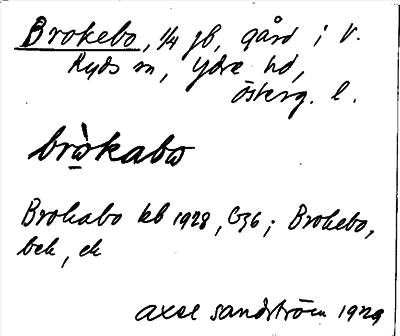 Brokebo, 1/4 jb, gård i V.
Ryds sn, Ydre hd,
Österg. l.
brὼkabω
Brokabo kb 1928, G36; Brokebo,
bek, ek
Axel Sandström 1929